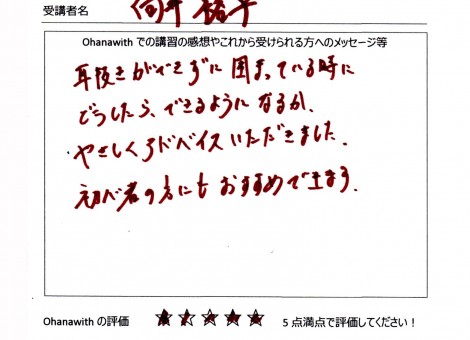 受講者名
Ohanawith での講習の感想やこれから受けられる方へのメッセージ等
耳抜きができずに困まっている時に
どうしたら、できるようになるか、
やさしくアドバイスいただきました。
初心者の方にもおすすめできます。
Ohanawith の評価 ★★★★★ 5 点満点で評価してください!